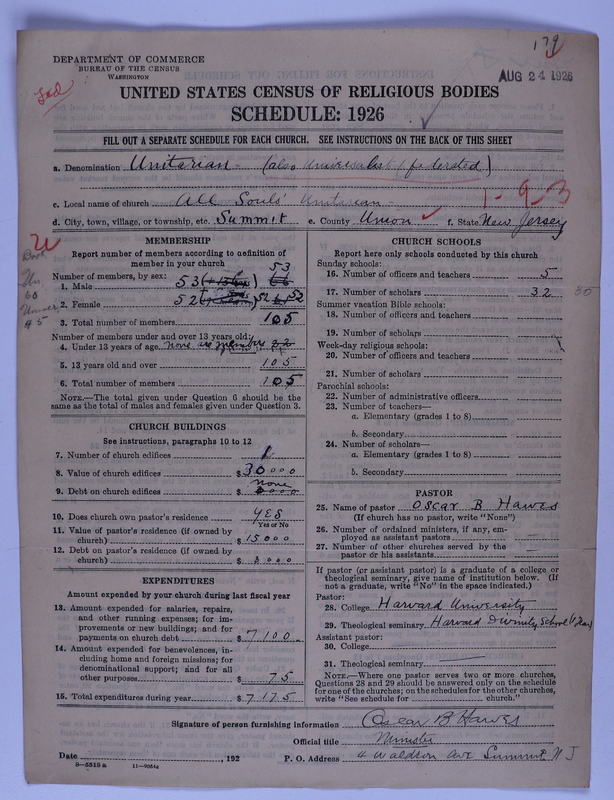 179
DEPARTMENT OF COMMERCE
BUREAU OF THE CENSUS
WASHINGTON
AUG 24 1926
UNITED STATES CENSUS OF RELIGIOUS BODIES
SCHEDULE: 1926
FILL OUT A SEPARATE SCHEDULE FOR EACH CHURCH. SEE INSTRUCTIONS ON THE BACK OF THIS SHEET
a. Denomination Unitarian - (also Universalist / federated)
1-9-3
c. Local name of church All Souls' Unitarian -
d. City, town, village, or township, etc. Summit e. County Union f. State New Jersey
MEMBERSHIP
Report number of members according to definition of
member in your church
Number of members, by sex:
53
1. Male 53
2. Female 52 52
3. Total number of members 105
Number of members under and over 13 years old:
4. Under 13 years of age none are members
5. 13 years old and over 105
6. Total number of members 105
NOTE.—The total given under Question 6 should be
same as the total of males and females given under Question 3.
CHURCH BUILDINGS
See instructions, paragraphs 10 to 12
7. Number of church edifices 1
8. Value of church edifices $30000
none
9. Debt on church edifices $
10. Does church own pastor's residence YES
Yes or No
11. Value of pastor's residence (if owned by
church) $15000
12. Debt on pastor's residence (if owned by
church) $3000
EXPENDITURES
Amount expended by your church during last fiscal year
13. Amount expended for salaries, repairs,
and other running expenses; for im-
provements or new buildings; and for
payments on church debt $7100
14. Amount expended for benevolences, in-
cluding home and foreign missions; for
denominational support; and for all
other purposes $75
15. Total expenditures during year $7175
CHURCH SCHOOLS
Report here only schools conducted by this church
Sunday schools:
16. Number of officers and teachers 5
17. Number of scholars 32
Summer vacation Bible schools:
18. Number of officers and teachers
19. Number of scholars
Week-day religious schools:
20. Number of officers and teachers
21. Number of scholars
Parochial schools:
22. Number of administrative officers
23. Number of teachers—
a. Elementary (grades 1 to 8)
b. Secondary
24. Number of scholars—
a. Elementary (grades 1 to 8)
b. Secondary
PASTOR
25. Name of pastor Oscar B Hawes
(If church has no pastor, write "None")
26. Number of ordained ministers, if any, em-
ployed as assistant pastors
27. Number of other churches served by the
pastor or his assistants
If pastor (or assistant pastor) is a graduate of a college or
theological seminary, give name of institution below. (If
not a graduate, write "No" in the space indicated.)
Pastor:
28. College Harvard University
29. Theological seminary Harvard Divinity School
Assistant pastor:
30. College
31. Theological seminary
NOTE.—Where one pastor serves two or more churches,
Questions 28 and 29 should be answered only on the schedule
for one of the churches; on the schedules for the other churches,
write "See schedule for church."
Signature of person furnishing information Oscar B Hawes
Official title Minister
Date , 192 P. O. Address 4 Waldron Ave Summit N J
8-5518 a 11-9054a